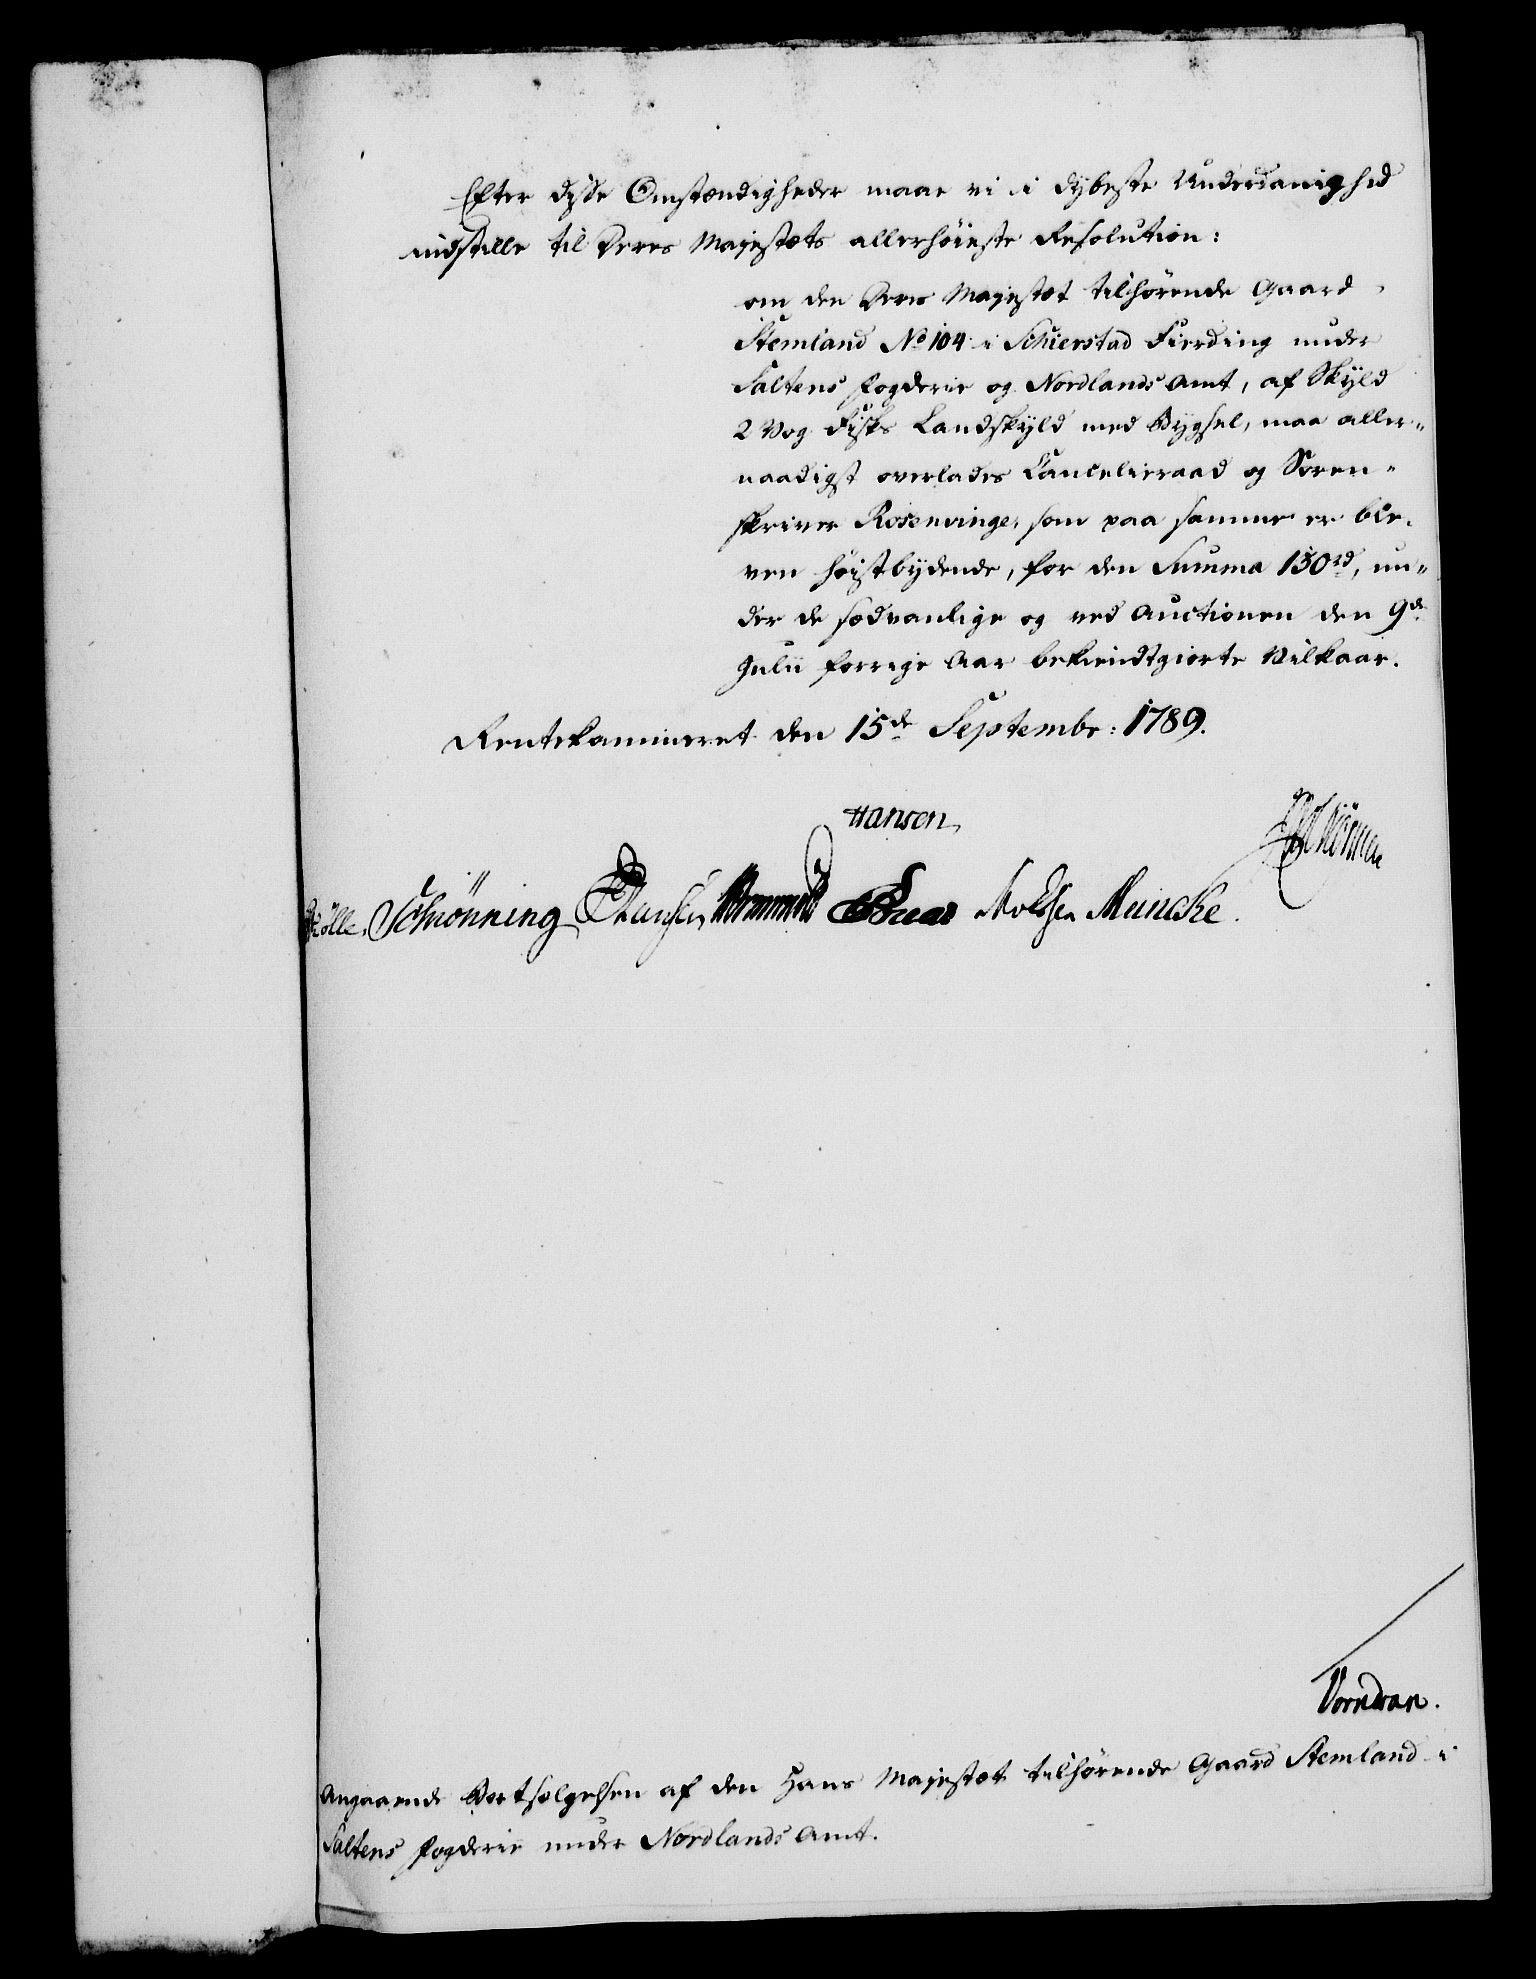 Efter disse Omstændigheder maae vi i dybeste Underdanighed
indstille til Deres Majestæts allerhöieste Resolution:
om den Deres Majestæt tilhörende Gaard
Stemland No 104 i Schierstad Fierding under
Saltens Fogderie og Nordlands Amt, af Skyld
2 Vog Fisks Landskyld med Bygsel, maa aller„
naadigst overlades Cancelieraad og Soren„
skriver Rosenvinge, som paa samme er ble„
ven höistbydende, for den Summa 150 rd, un„
der de sædvanlige og ved Auctionen den 9de
Julii forrige Aar bekiendtgiorte Vilkaar.
Rentekammeret den 15de Septembr: 1789.
Hansen
Schiönning Hansen Müncke.
Vorndran.
Angaaende Bortsælgelsen af den Hans Majestæt tilhörende Gaard Stemland i
Saltens Fogderie under Nordlands Amt.